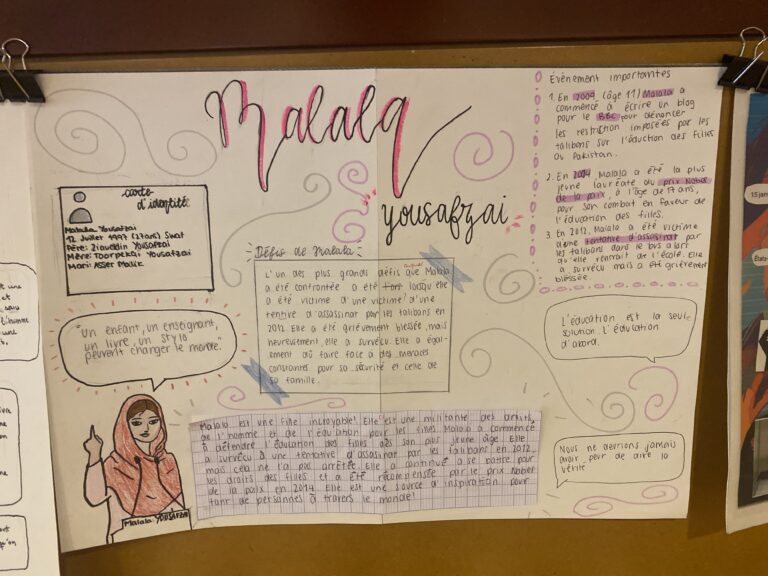 Malala
yousafzai
carte
d'identité
Malala Yousafzai
12 Juillet 1997 (27ans) Swat
Père: Ziauddin Yousafzai
Mère: Toorpekai Yousafzai
Mari: Asser Malik
"Un enfant, un enseignant,
un livre, un stylo
peuvent changer le monde."
Malala YOUSAFZAI
Défis de Malala
L'un des plus grands défis que Malala
ait confrontée a été lorsqu'elle
a été victime d'une victime d'une
tentive d'assassinat par les talibans en
2012. Elle a été grièvement blessée, mais
heureusement, elle a survécu. Elle a égal-
ement dû faire face à des menaces
constantes pour sa sécurité et celle de
sa famille.
Malala est une fille incroyable! Elle est une militante des droits
de l'homme et de l'éducation pour les filles. Malala a commencé
à défendre l'éducation des filles dès son plus jeune âge. Elle
a survécu à une tentative d'assassinat par les talibans en 2012,
mais cela ne l'a pas arrêtée. Elle a continué à se battre pour
les droits des filles et a été récompensée par le prix Nobel
de la paix en 2014. Elle est une source d'inspiration pour
tant de personnes à travers le monde!
Évènement importantes
1. En 2009 (âge 11) Malala a
commencé à écrire un blog
pour le BBC pour dénoncer
les restriction imposées par les
talibans sur l'éduction des filles
au Pakistan.
2. En 2014 Malala a été la plus
jeune lauréate du prix Nobel
de la paix, à l'âge de 17 ans,
pour son combat en faveur de
l'éducation des filles.
3. En 2012, Malala a été victime
d'une tentative d'assassinat par
les talibans dans le bus alors
qu'elle rentrait de l'école. Elle
a survécu mais a été grièvement
blessée.
L'éducation est la seule
solution. L'éducation
d'abord.
Nous ne devrions jamais
avoir peur de dire la
vérité
15 jan
États-